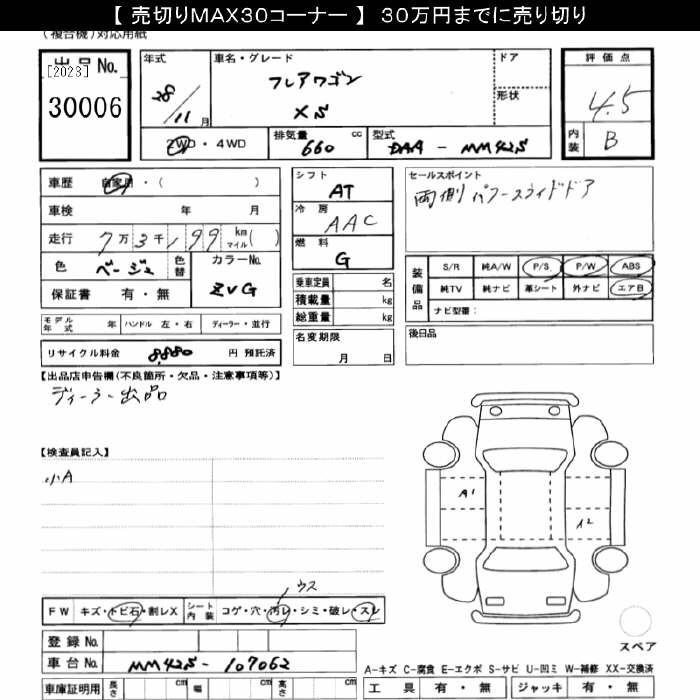 【 売切りMAX30コーナー 】 30万円までに売り切り
(複合機)対応用紙
出品No.
[2023]
30006
年式
28/11月
車名・グレード
フレアワゴン
XS
ドア
形状
評価点
4.5
内装 B
2WD・4WD
排気量 660 cc
型式 DAA - MM42S
車歴 自家用・( )
車検 年 月
走行 7万3千199 km マイル( )
色 ベージュ 色替
カラーNo.
ZVG
保証書 有・無
シフト
AT
冷房
AAC
燃料
G
乗車定員 名
積載量 kg
総重量 kg
セールスポイント
両側パワースライドドア
装備品
S/R 純A/W P/S P/W ABS
純TV 純ナビ 革シート 外ナビ エアB
ナビ型番:
モデル年式 年 ハンドル 左・右 ディーラー・並行
リサイクル料金 8,880 円 預託済
名変期限
月 日
後日品
【出品店申告欄(不良箇所・欠品・注意事項等)】
ディーラー出品
【検査員記入】
小A
A1
ウス
FW キズ・トビ石・割レX シート内装 コゲ・穴・汚レ・シミ・破レ・スレ
登録No.
車台No. MM42S - 107062
車庫証明用 長さ cm 幅 cm 高さ cm
スペア
A-キズ C-腐食 E-エクボ S-サビ U-凹ミ W-補修 XX-交換済
工具 有・無 ジャッキ 有・無